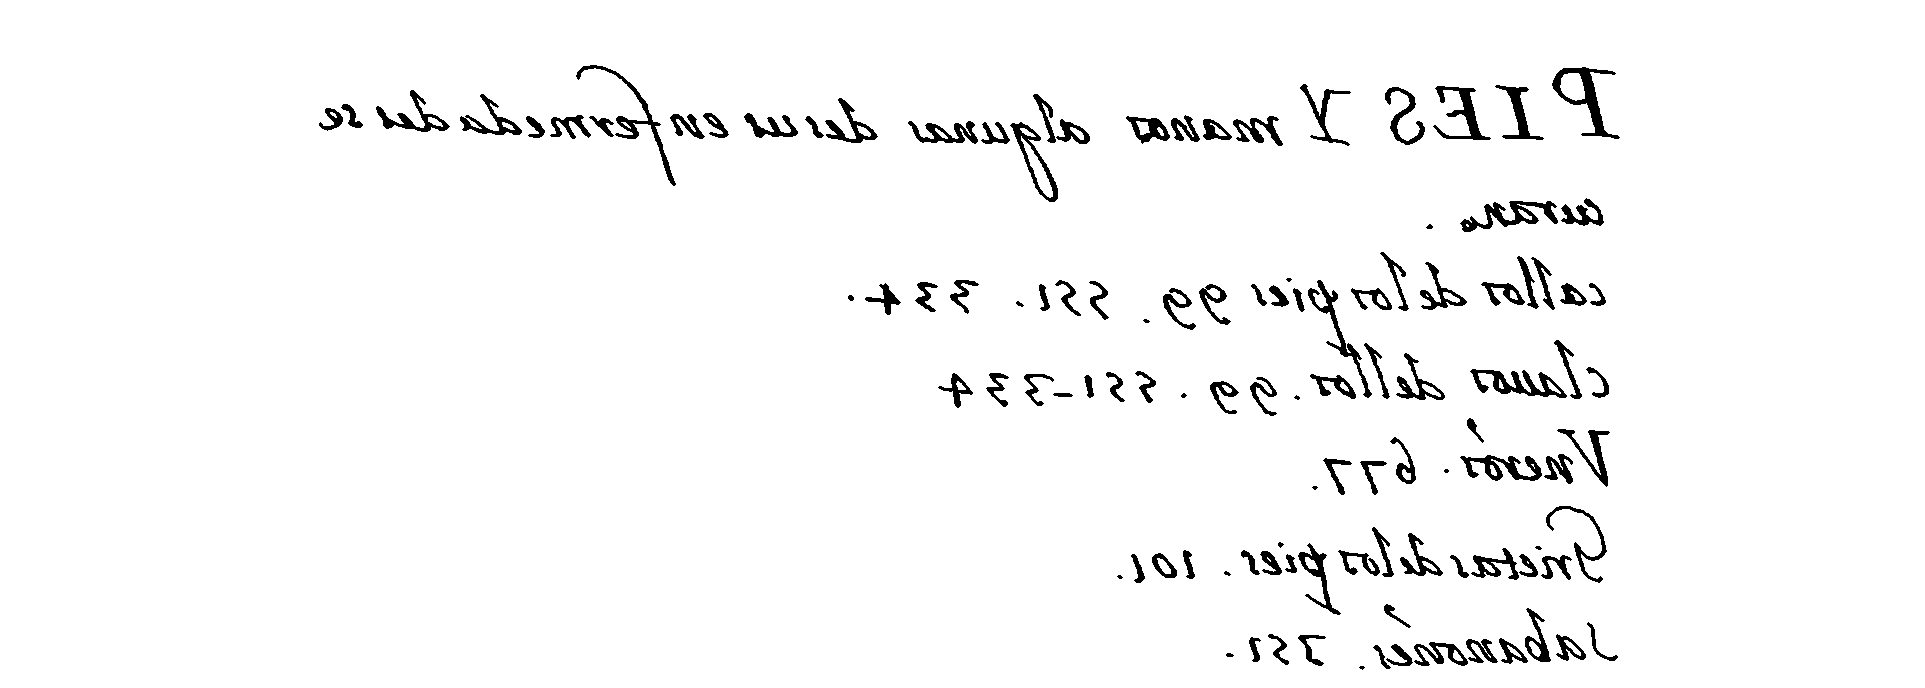 PIES Y manos algunas desus enfermedades se
curan.
callos delos pies 99. 551. 334.
clauos dellos. 99. 551-334
Vneros. 677.
Grietas delos pies. 101.
sabanónes. 751.